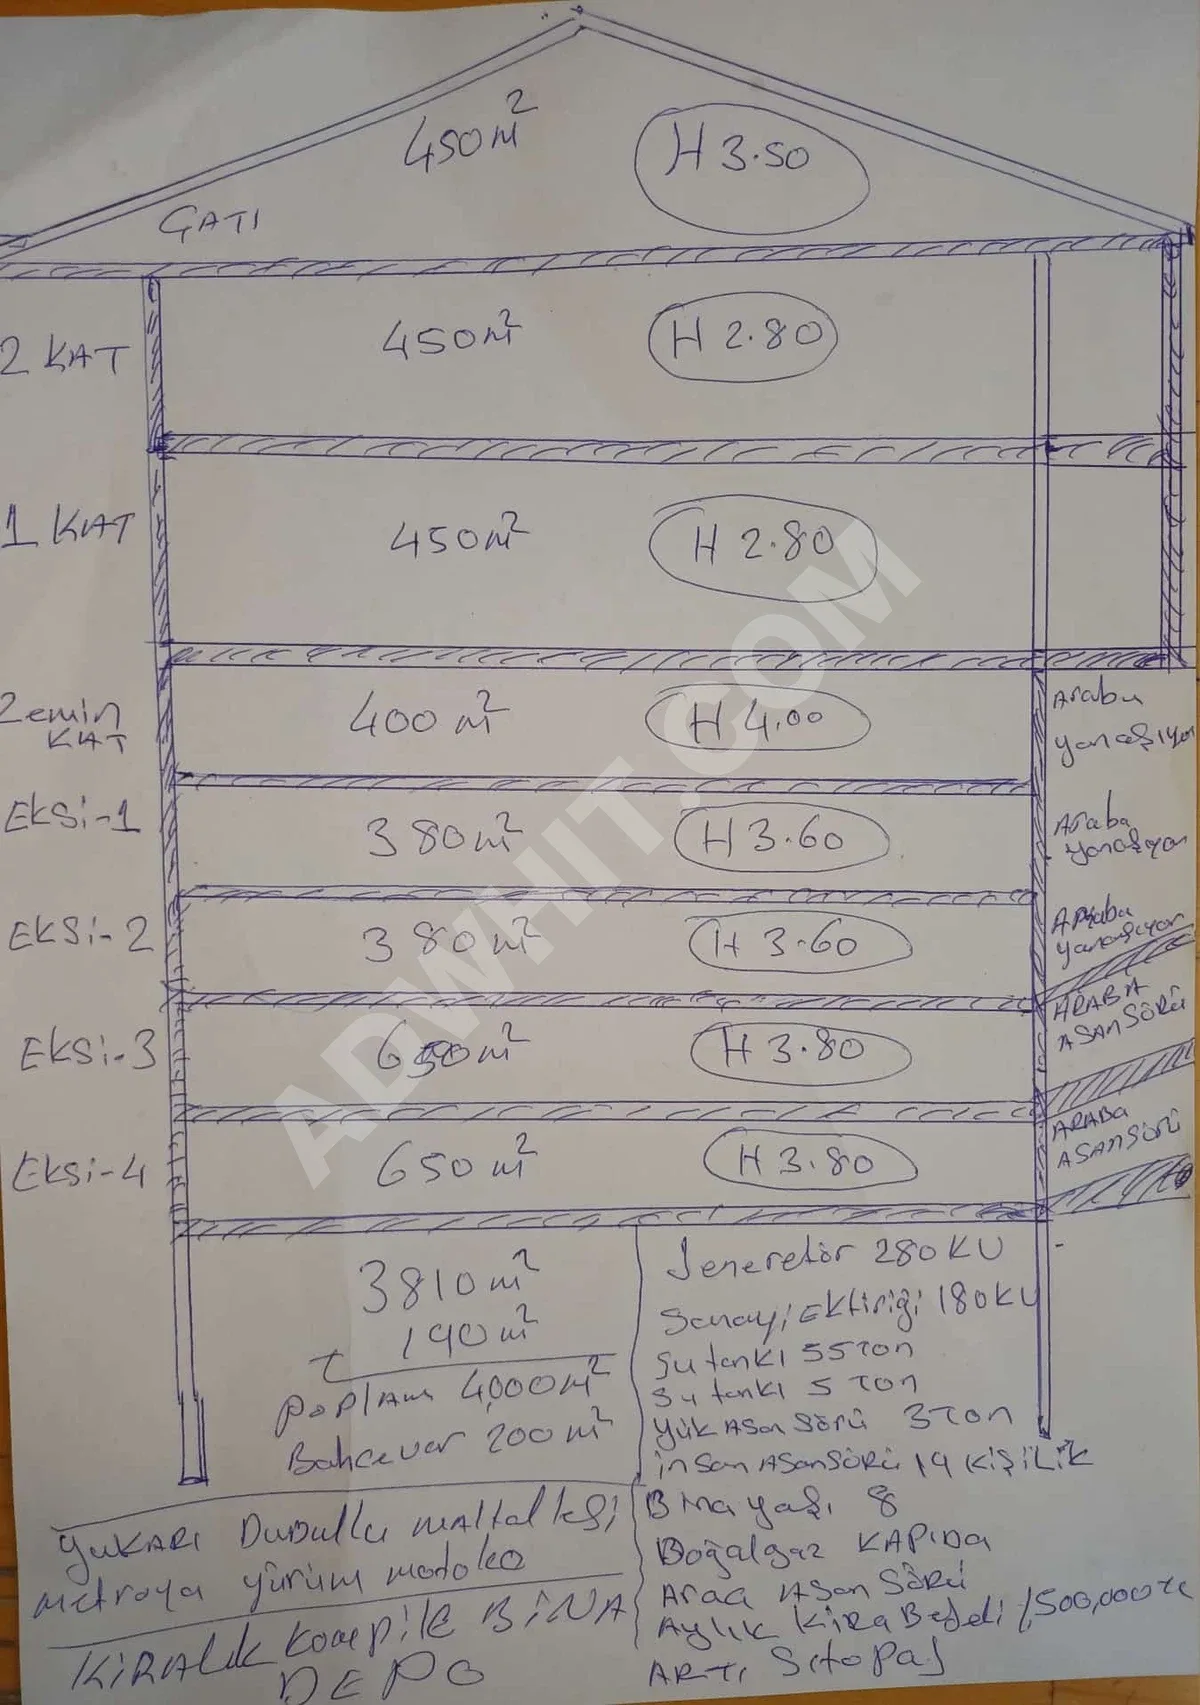 450m²
H 3.50
ÇATI
2 KAT
450m²
H 2.80
1 KAT
450m²
H 2.80
Zemin
KAT
400m²
H 4.00
Araba
yanaşıyor
EKSİ-1
380m²
H 3.60
Araba
yanaşıyor
EKSİ-2
380m²
H 3.60
Araba
yanaşıyor
EKSİ-3
650m²
H 3.80
ARABA
ASANSÖRÜ
EKSİ-4
650m²
H 3.80
ARABA
ASANSÖRÜ
3810m²
190m²
4,000m²
Bahcevar 200m²
Jeneretör 280KU
Sanayi 180KU
Su tankı 55 TON
Su tankı 5 TON
Yük ASansörü 3 TON
insan ASansörü 19 KİŞİLİK
Bina yaşı 8
Doğalgaz KAPIDA
Araç ASansörü
Aylık Kira Bedeli 1,500,000 TL
ARTI Stopaj
YUKARI Dudullu
metroya yürüm
KİRALIK Kompile BİNA
DEPO
ADWHIT.COM